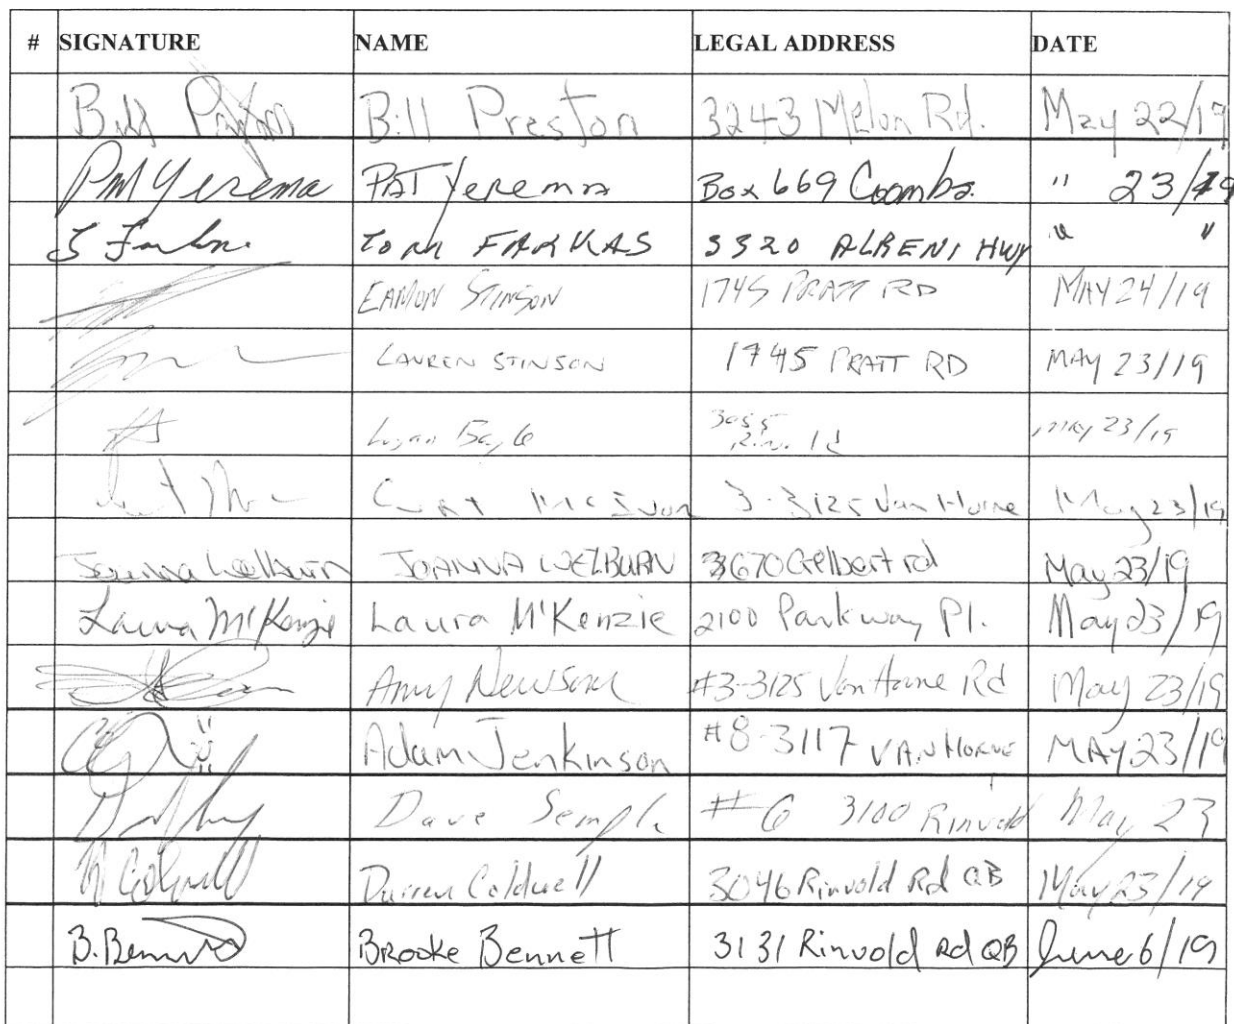 # SIGNATURE NAME LEGAL ADDRESS DATE
Bill Preston Bill Preston 3243 Melon Rd. May 22/19
Pat Yerema PAT Yerema Box 669 Coombs. " 23/19
T FARKAS 3320 ALBENI HWY " "
EAMON STINSON 1745 PRATT RD MAY 24/19
LAUREN STINSON 1745 PRATT RD MAY 23/19
3055
May 23/19
Curt 3-3125 Van Horne May 23/19
Joanna Welburn JOANNA WELBURN 3670 Gelbert rd May 23/19
Laura McKenzie Laura McKenzie 2100 Parkway Pl. May 23/19
Amy Newsome #3-3125 Van Horne Rd May 23/19
Adam Jenkinson #8-3117 VAN HORNE MAY 23/19
Dave Semple #6 3100 Rinvold May 23
Darren Coldwell 3046 Rinvold Rd QB May 23/19
B. Bennett Brooke Bennett 3131 Rinvold Rd QB June 6/19